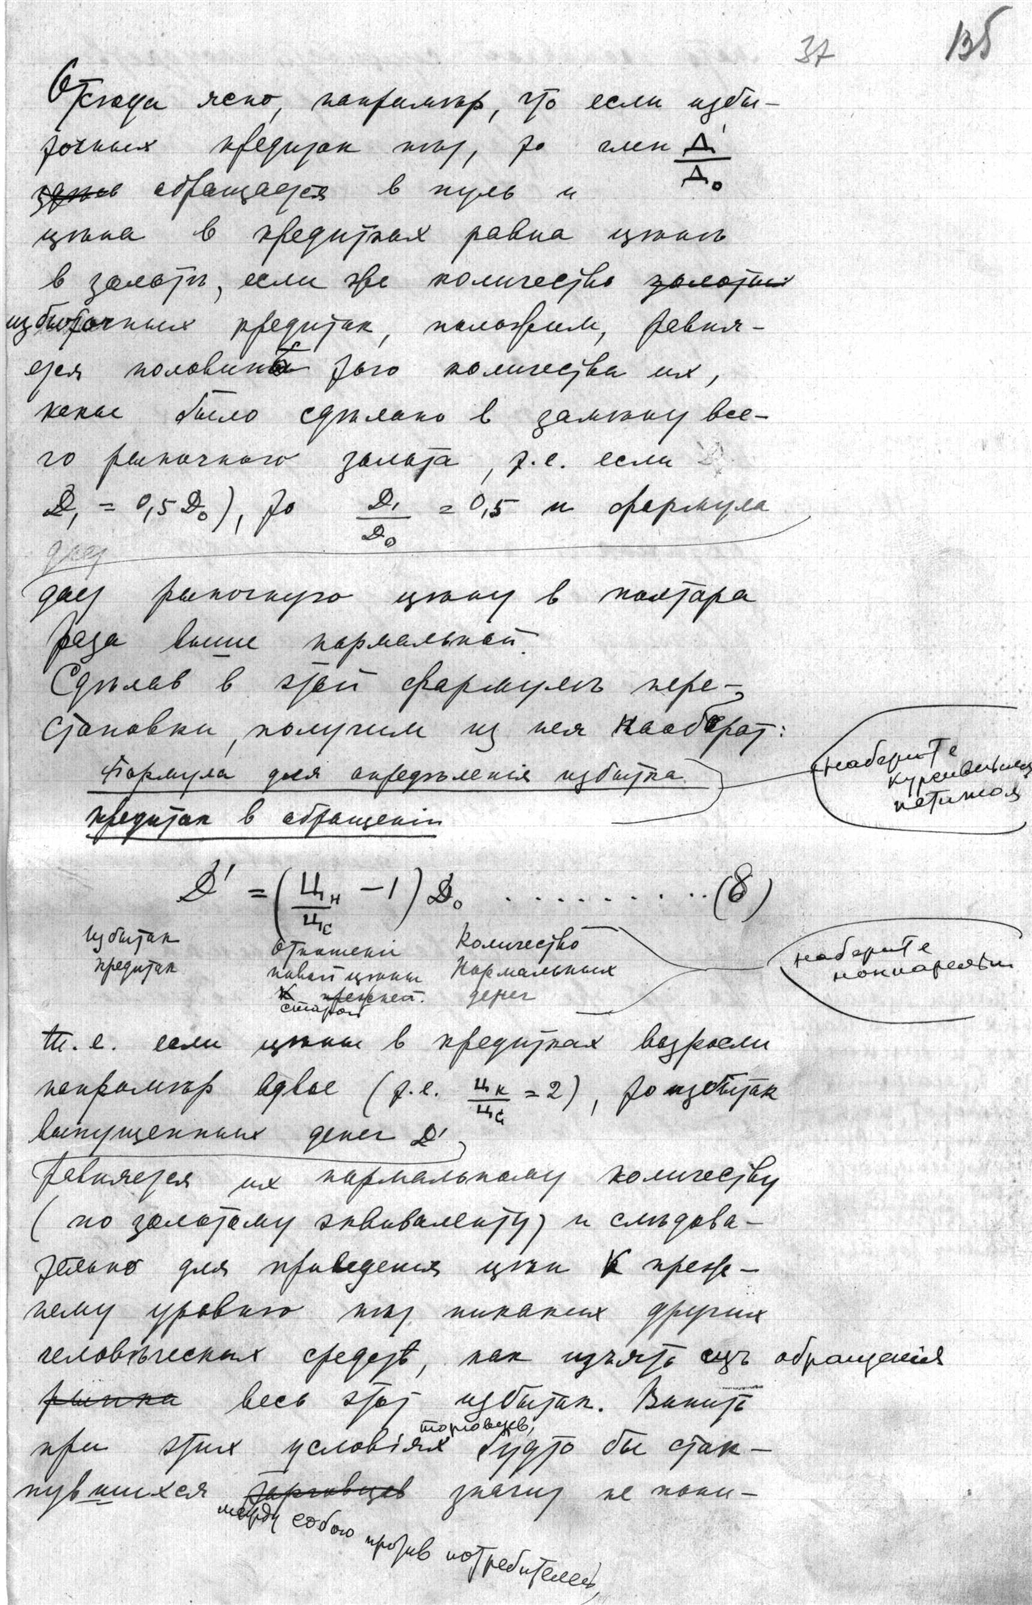 37 135
Отсюда ясно, напримѣр, что если избы-
точных кредиток нѣт, то член Д'/Д₀
обращается в нуль и
цѣна в кредитках равна цѣнѣ
в золотѣ, если же количество золотых
избыточных кредиток, положим, равня-
ется половинѣ того количества их,
какое было сдѣлано в замѣну все-
го рыночного золота, т.е. если
Д₁ = 0,5 Д₀), то Д₁/Д₀ = 0,5 и формула
дает
дает рыночную цѣну в полтора
раза выше нормальной.
Сдѣлав в этой формулѣ пере-
становки, получим из нея наоборот:
Формула для опредѣленія избытка
кредиток в обращеніи
наберите
курсивом
петитом
Д' = (Цн/Цс - 1) Д₀ . . . . . . . . . . (8)
избыток отношеніе Количество
кредиток новой цѣны нормальных
к прежней. денег
старой
наберите
нонпарелью
т.е. если цѣны в кредитках возросли
напримѣр вдвое (т.е. Цк/Цс = 2), то избыток
выпущенных денег Д'
равняется их нормальному количеству
(по золотому эквиваленту) и слѣдова-
тельно для приведенія цѣн к преж-
нему уровню нѣт никаких других
человѣческих средств, как изъять изъ обращенія
рынка весь этот избыток. Винить
при этих условіях торговцев, будто бы стак-
нувшихся торговцев значит не пони-
между собою против потребителей,